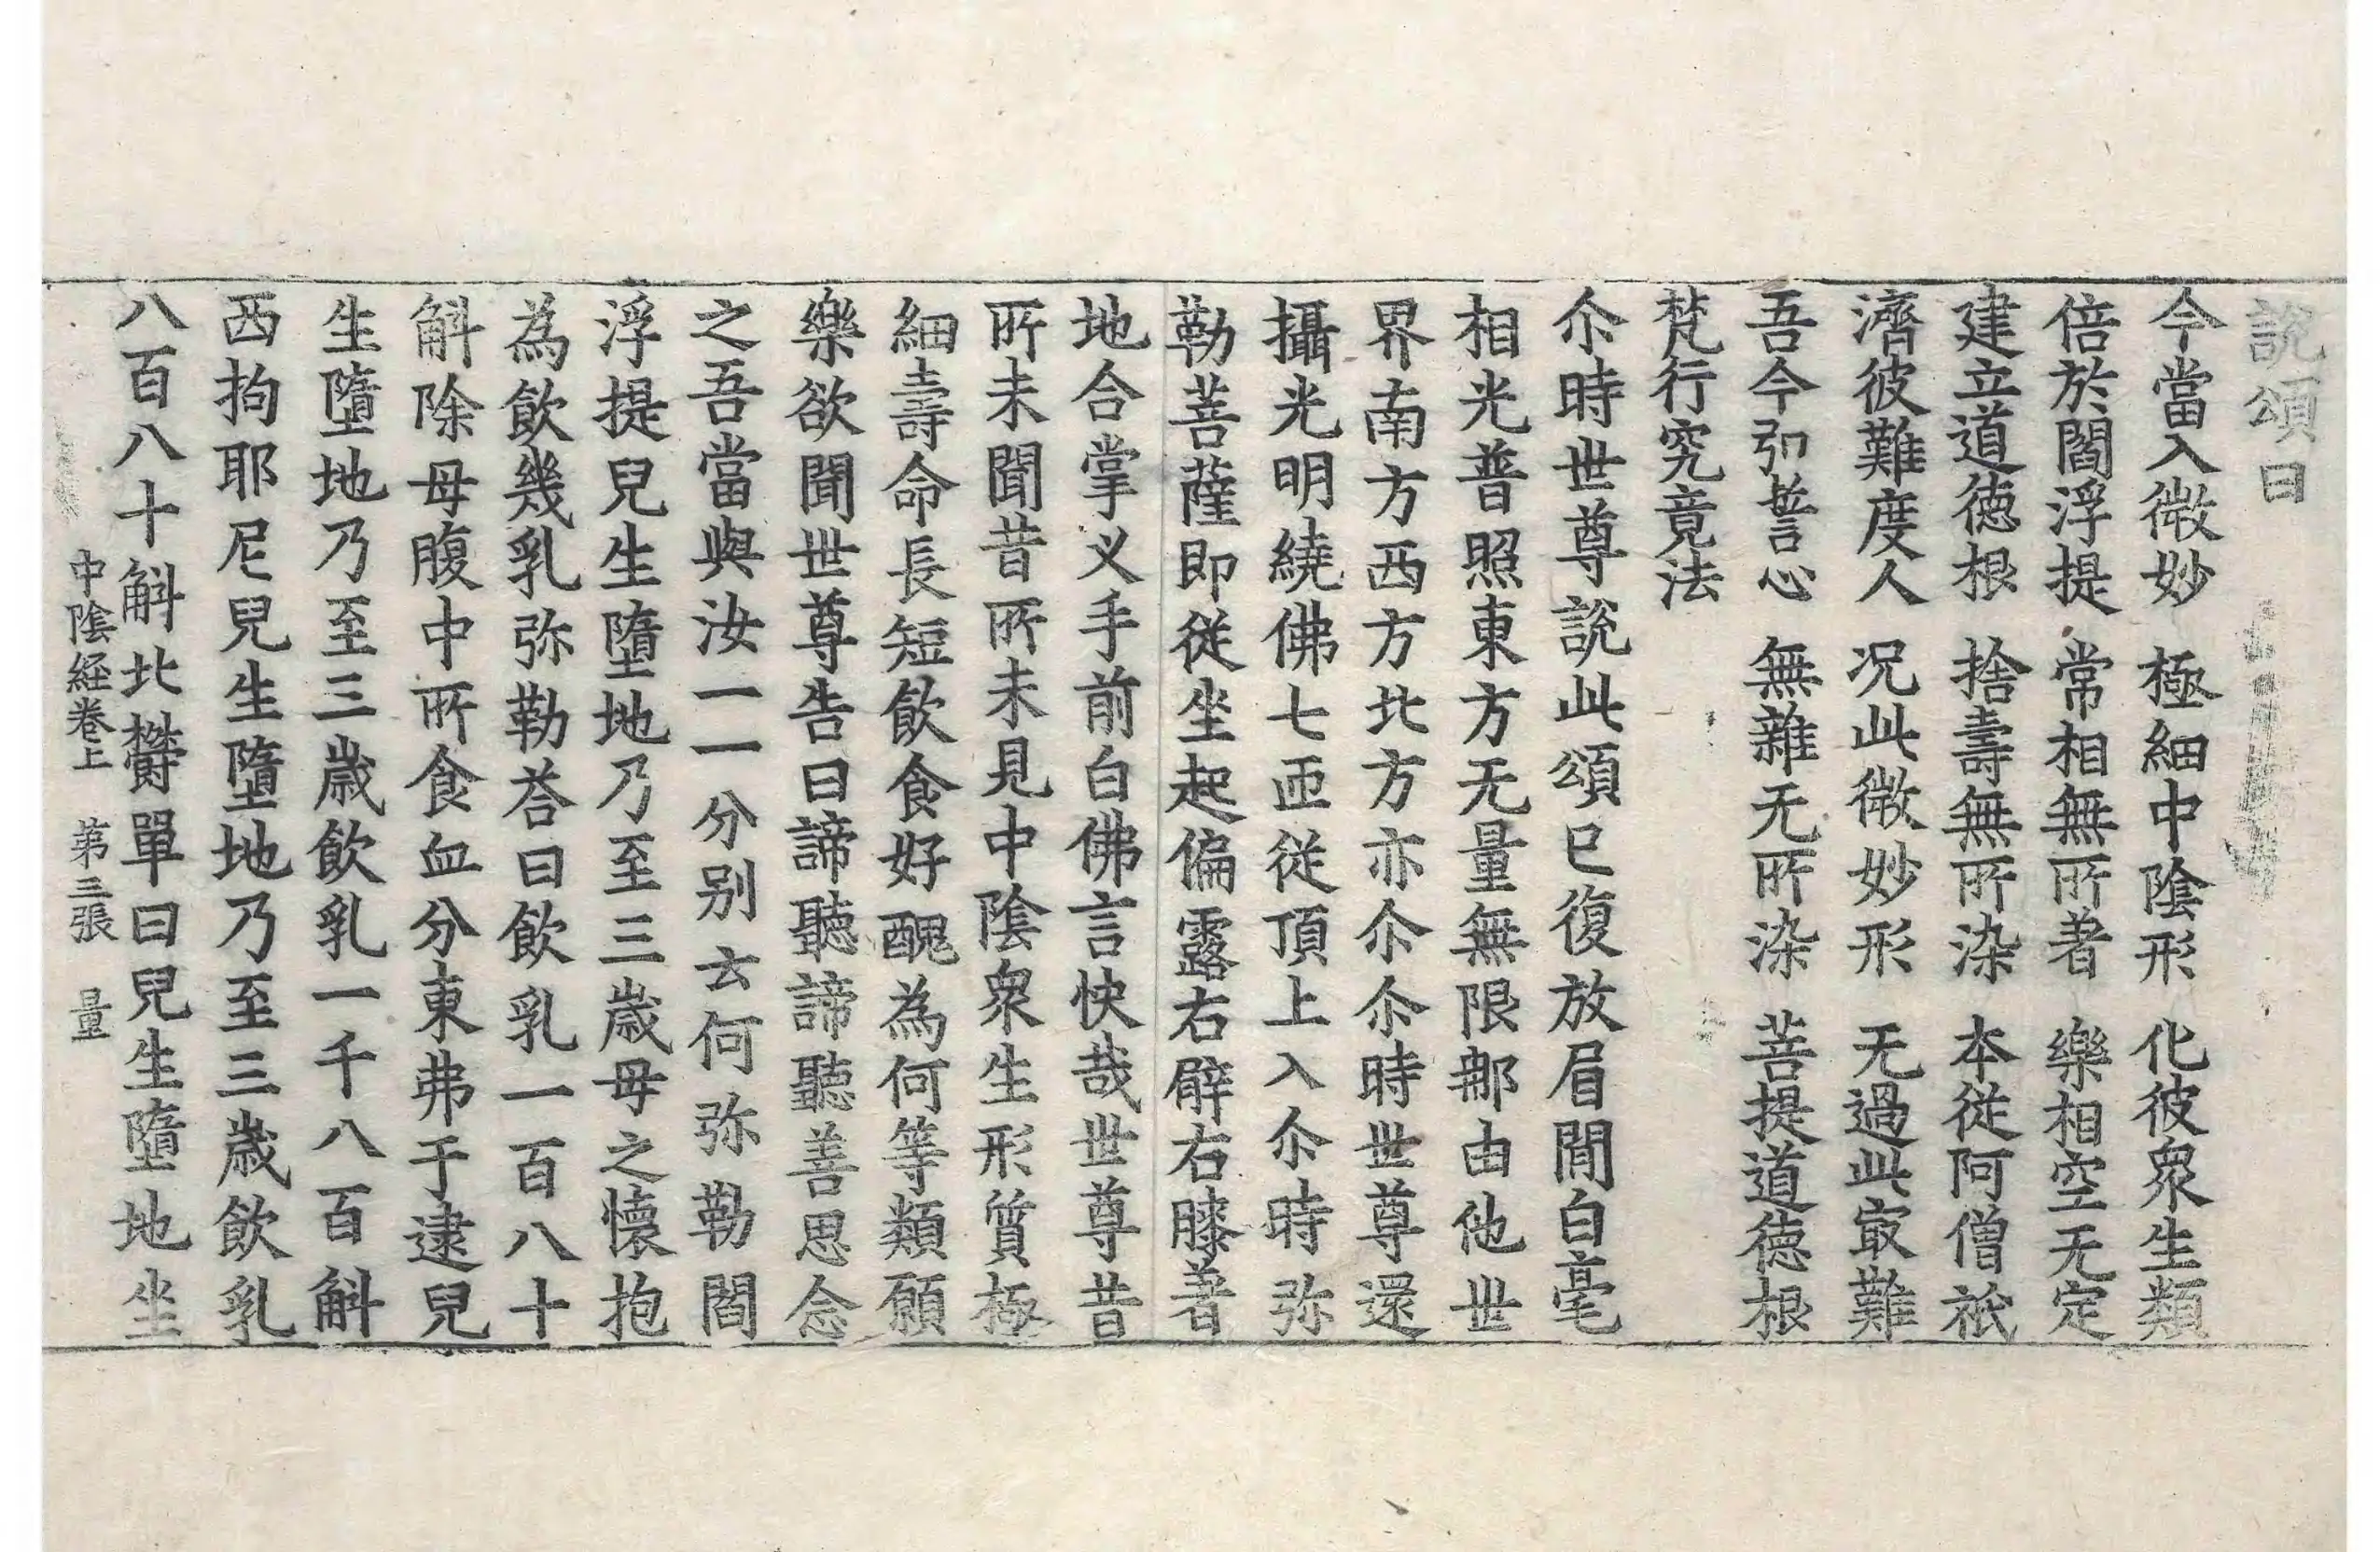 說頌曰
今當入微妙　極細中陰形　化彼衆生類
倍於閻浮提　常相無所著　樂相空无定
建立道德根　捨壽無所染　本從阿僧祇
濟彼難度人　况此微妙形　无過此㝡難
吾今弘誓心　無雜无所染　菩提道德根
梵行究竟法
尒時世尊說此頌已復放眉間白毫
相光普照東方无量無限那由他世
界南方西方北方亦尒尒時世尊還
攝光明繞佛七匝從頂上入尒時弥
勒菩薩即從坐起偏露右臂右膝著
地合掌义手前白佛言快哉世尊昔
所未聞昔所未見中陰衆生形質極
細壽命長短飲食好醜為何等類願
樂欲聞世尊告曰諦聽諦聽善思念
之吾當與汝一一分别云何弥勒閻
浮提兒生墮地乃至三歲母之懷抱
為飲幾乳弥勒荅曰飲乳一百八十
斛除母腹中所食血分東弗于逮兒
生墮地乃至三歲飲乳一千八百斛
西拘耶尼兒生墮地乃至三歲飲乳
八百八十斛北欝單曰兒生墮地坐
中陰経卷上　第三張　量